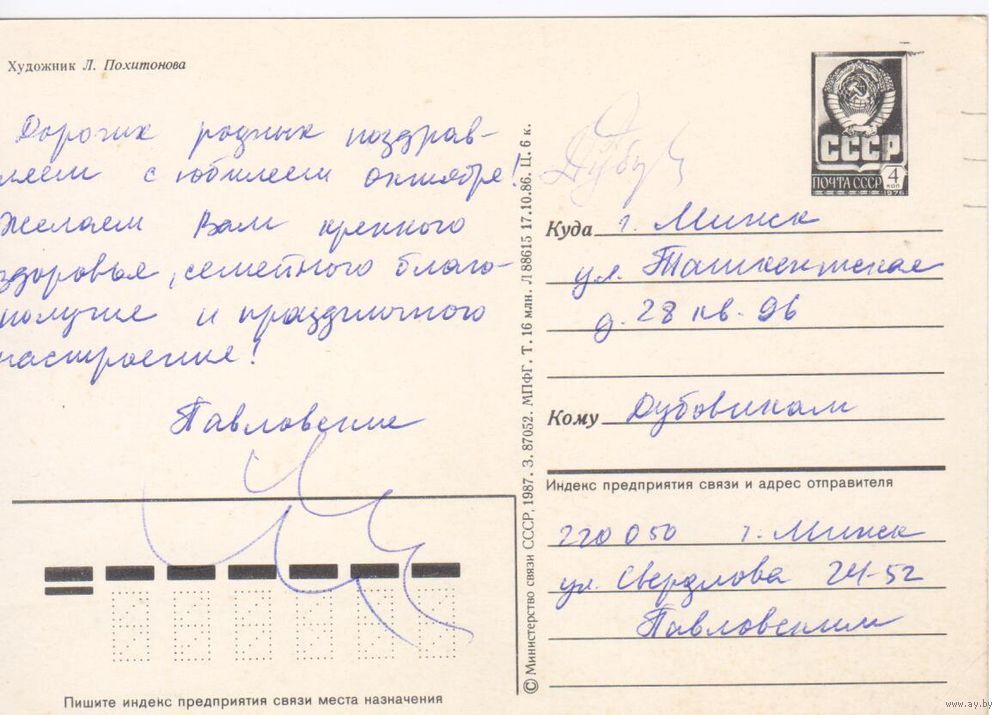 Художник Л. Похитонова
Дорогих родных поздрав-
ляем с юбилеем октября!
Желаем Вам крепкого
здоровья, семейного благо-
получия и праздничного
настроения!
Павловские
Пишите индекс предприятия связи места назначения
© Министерство связи СССР, 1987. З. 87052. МПФГ. Т. 16 млн. Л 88615 17.10.86. Ц. 6 к.
СССР
ПОЧТА СССР
4
коп
1976
Куда г. Минск
ул. Ташкентская
д. 28 кв. 96
Кому Дубовикам
Индекс предприятия связи и адрес отправителя
220050 г. Минск
ул. Свердлова 24-52
Павловскими
www.ay.by